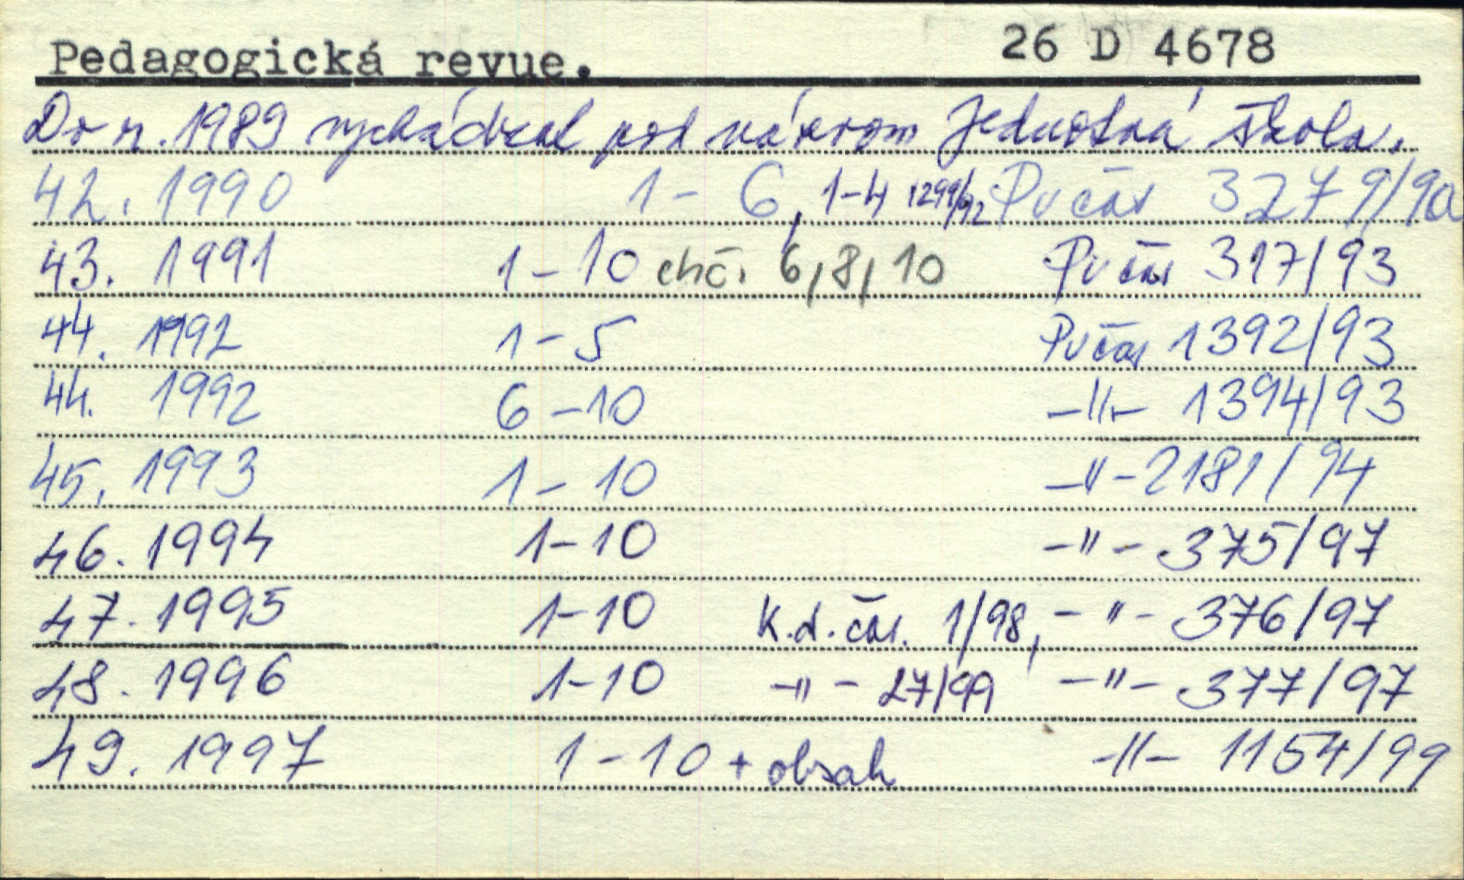 Pedagogická revue. 26 D 4678
Do r. 1989 vychádzal pod názvom Jednotná škola.
42. 1990 1 - 6, 1-4 1299/92 Pv čas 3279/90
43. 1991 1 - 10 chč. 6, 8, 10 Pv čas 317/93
44. 1992 1 - 5 Pv čas 1392/93
44. 1992 6 - 10 -"- 1394/93
45. 1993 1 - 10 -"- 2181/94
46. 1994 1-10 -"- 375/97
47. 1995 1-10 K.d.čas. 1/98, -"- 376/97
48. 1996 1-10 -"- 27/99 -"- 377/97
49. 1997 1 - 10 + obsah -"- 1154/99